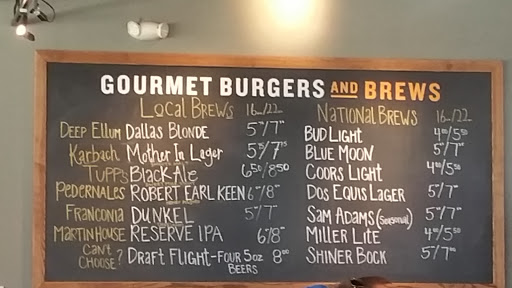 GOURMET BURGERS AND BREWS
LOCAL BREWS 16oz/22
DEEP ELLUM DALLAS BLONDE 5/7
Karbach Mother In Lager 5/7
TUPPS BLACK ALE 650/850
PEDERNALES ROBERT EARL KEEN 6/8
FRANCONIA DUNKEL 5/7
MARTIN HOUSE RESERVE IPA 6/8
CAN'T CHOOSE? DRAFT FLIGHT-FOUR 5oz BEERS 8
NATIONAL BREWS 16oz/22
BUD LIGHT 4/5
BLUE MOON 5/7
COORS LIGHT 4/5
DOS EQUIS LAGER 5/7
SAM ADAMS (SEASONAL) 5/7
MILLER LITE 4/5
SHINER BOCK 5/7